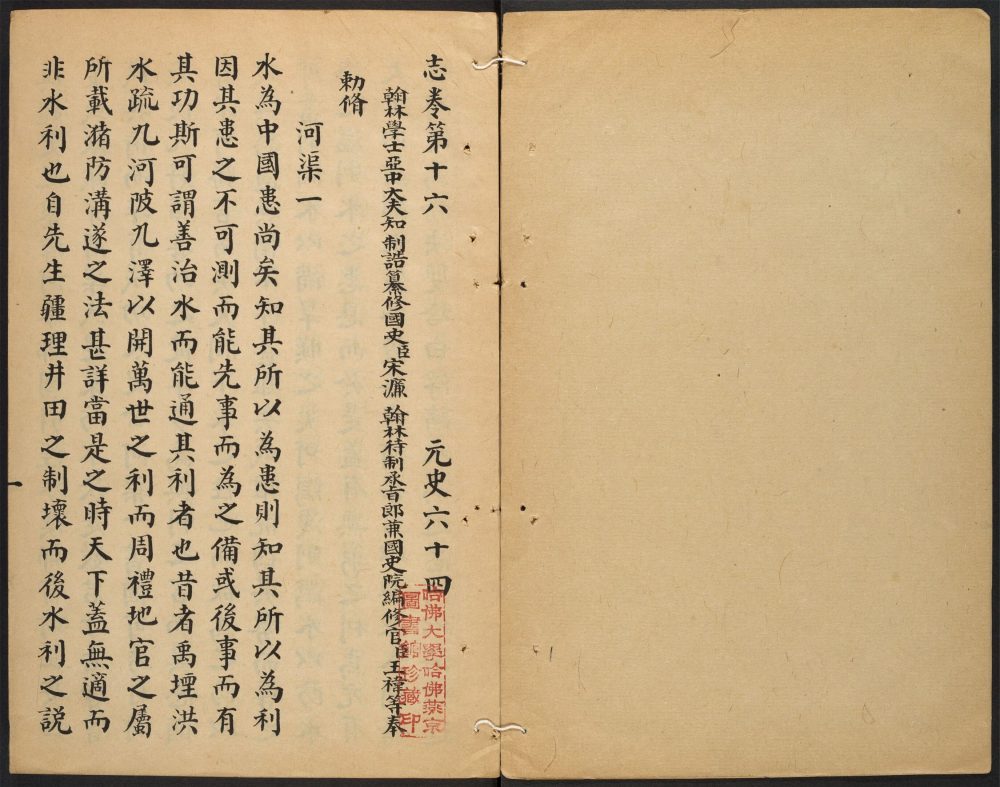 志卷第十六　元史六十四
翰林學士亞中大夫知制誥纂修國史臣宋濂　翰林待制承旨郎兼國史院編修官臣王禕等奉
勅脩
河渠一
水為中國患尚矣知其所以為患則知其所以為利
因其患之不可測而能先事而為之備或後事而有
其功斯可謂善治水而能通其利者也昔者禹堙洪
水疏九河陂九澤以開萬世之利而周禮地官之屬
所載瀦防溝遂之法甚詳當是之時天下蓋無適而
非水利也自先生疆理井田之制壞而後水利之説
一
哈佛大學哈佛燕京
圖書館珍藏印